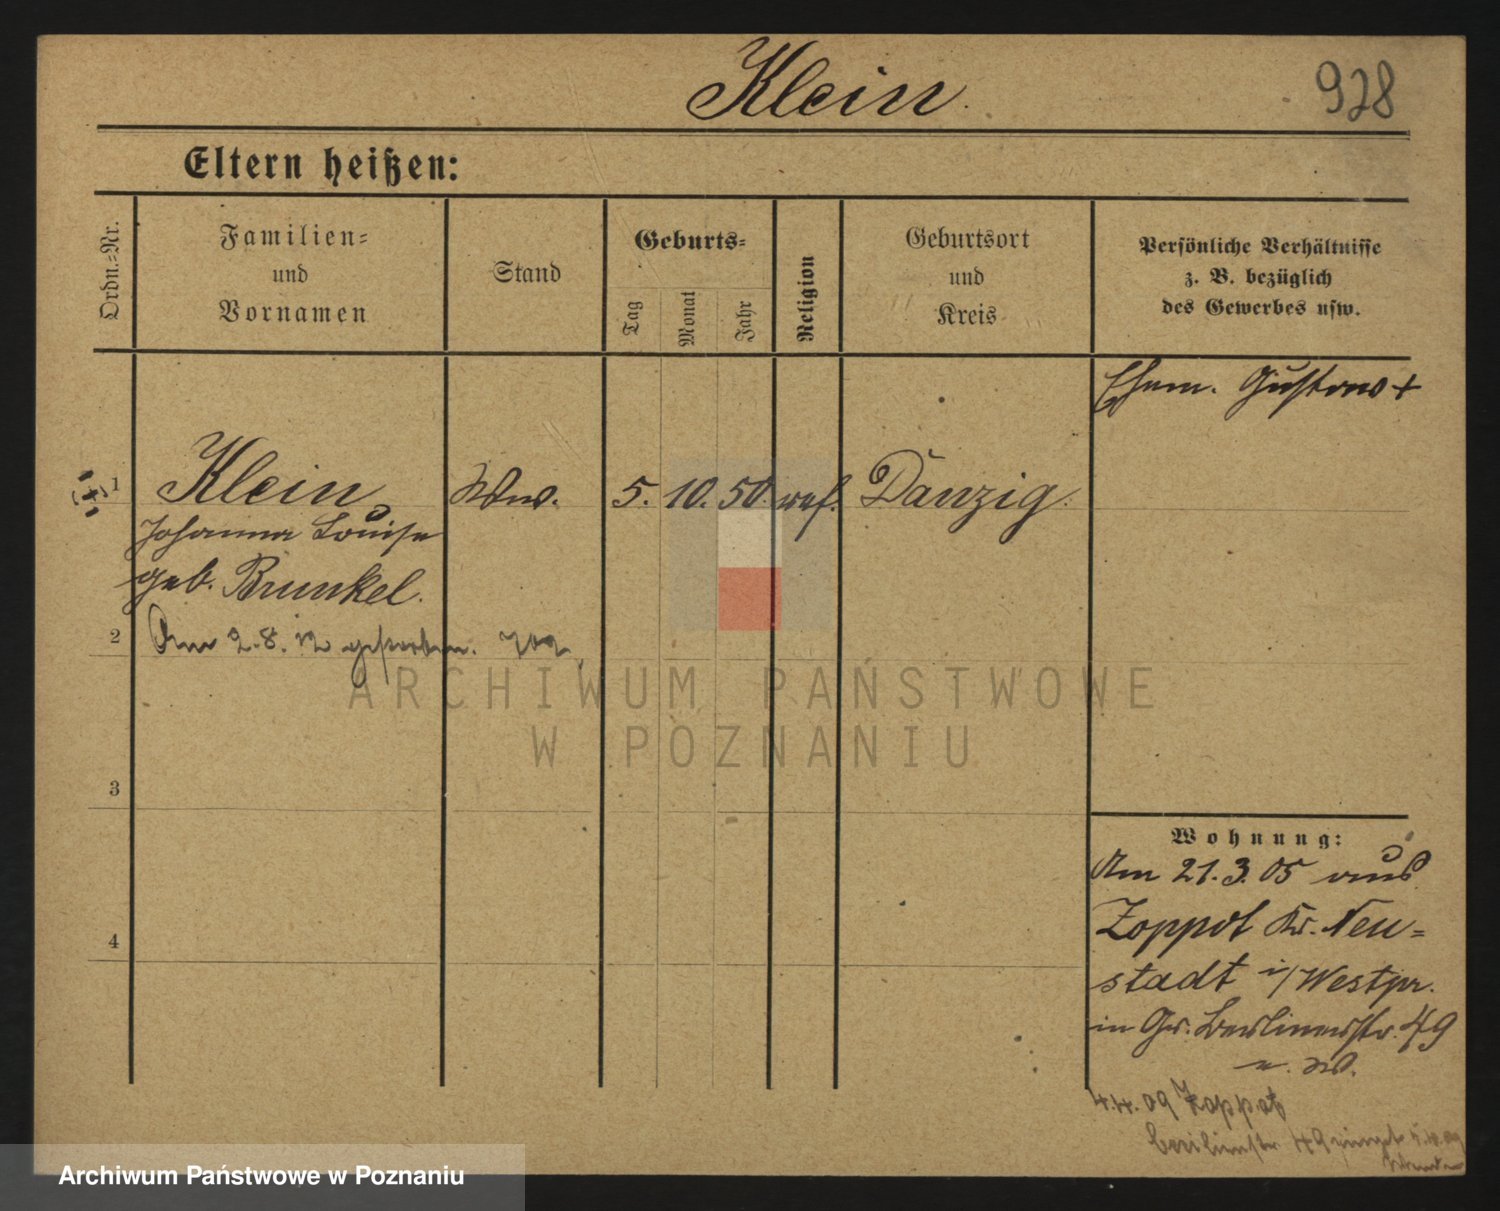 Klein
928
Eltern heißen:
Ordn.-Nr.
Familien-
und
Vornamen
Stand
Geburts-
Tag
Monat
Jahr
Religion
Geburtsort
und
Kreis
Persönliche Verhältnisse
z. B. bezüglich
des Gewerbes usw.
Ehem. Gustav +
1
Klein
Wwe.
5. 10. 50.
ref.
Danzig.
Johanna Louise
geb. Brunkel.
2
Am 2.8.12 gestorben. 702
3
4
Wohnung:
Am 21.3.05 aus
Zoppot Kr. Neu-
stadt i/Westpr.
in Gr. Berlinerstr. 49
4.4.09 Zoppot
Berlinerstr. 49
ARCHIWUM PAŃSTWOWE
W POZNANIU
Archiwum Państwowe w Poznaniu